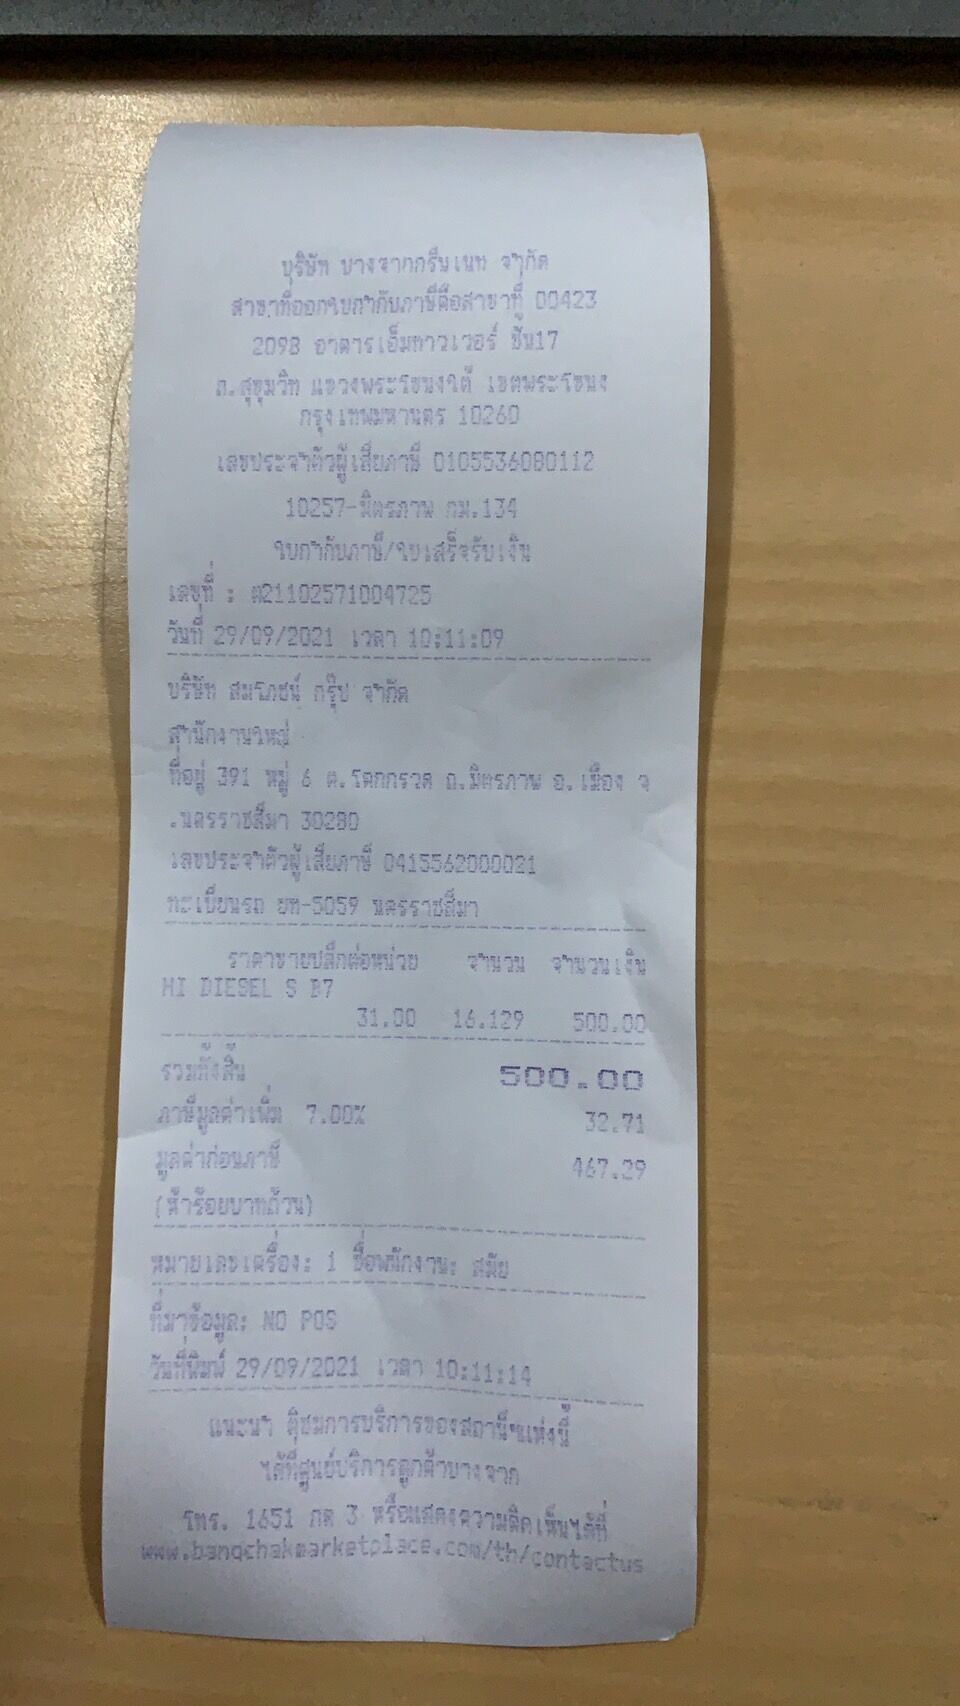 บริษัท บางจากกรีนเนท จำกัด
สาขาที่ออกใบกำกับภาษีคือสาขาที่ 00423
2098 อาคารเอ็มทาวเวอร์ ชั้น17
ถ.สุขุมวิท แขวงพระโขนงใต้ เขตพระโขนง
กรุงเทพมหานคร 10260
เลขประจำตัวผู้เสียภาษี 0105536080112
10257-มิตรภาพ กม.134
ใบกำกับภาษี/ใบเสร็จรับเงิน
เลขที่ : ต21102571004725
วันที่ 29/09/2021 เวลา 10:11:09
บริษัท สมโภชน์ กรุ๊ป จำกัด
สำนักงานใหญ่
ที่อยู่ 391 หมู่ 6 ต.โคกกรวด ถ.มิตรภาพ อ.เมือง จ
.นครราชสีมา 30280
เลขประจำตัวผู้เสียภาษี 0415562000021
ทะเบียนรถ ยท-5059 นครราชสีมา
ราคาขายปลีกต่อหน่วย จำนวน จำนวนเงิน
HI DIESEL S B7
31.00 16.129 500.00
รวมทั้งสิ้น 500.00
ภาษีมูลค่าเพิ่ม 7.00% 32.71
มูลค่าก่อนภาษี 467.29
(ห้าร้อยบาทถ้วน)
หมายเลขเครื่อง: 1 ชื่อพนักงาน: สมัย
ที่มาข้อมูล: NO POS
วันที่พิมพ์ 29/09/2021 เวลา 10:11:14
แนะนำ ติชมการบริการของสถานีฯแห่งนี้
ได้ที่ศูนย์บริการลูกค้าบางจาก
โทร. 1651 กด 3 หรือแสดงความคิดเห็นได้ที่
www.bangchakmarketplace.com/th/contactus